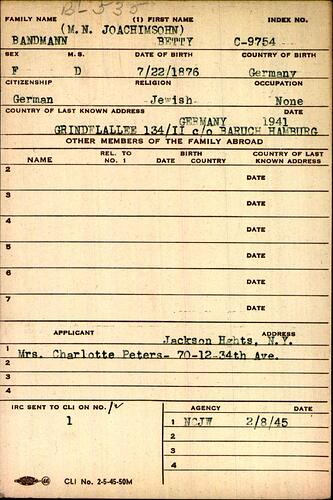 B-535
FAMILY NAME (1) FIRST NAME INDEX NO.
(M.N. JOACHIMSOHN)
BANDMANN BETTY C-9754
SEX M.S. DATE OF BIRTH COUNTRY OF BIRTH
F D 7/22/1876 Germany
CITIZENSHIP RELIGION OCCUPATION
German Jewish None
COUNTRY OF LAST KNOWN ADDRESS DATE
GERMANY 1941
GRINDELALLEE 134/II c/o BARUCH HAMBURG
OTHER MEMBERS OF THE FAMILY ABROAD
NAME REL. TO NO. 1 BIRTH DATE COUNTRY COUNTRY OF LAST KNOWN ADDRESS
2 DATE
3 DATE
4 DATE
5 DATE
6 DATE
7 DATE
APPLICANT ADDRESS
Jackson Hghts, N.Y.
1 Mrs. Charlotte Peters- 70-12-34th Ave.
2
3
4
IRC SENT TO CLI ON NO. AGENCY DATE
1
1 NCJW 2/8/45
2
3
4
CLI No. 2-5-45-50M